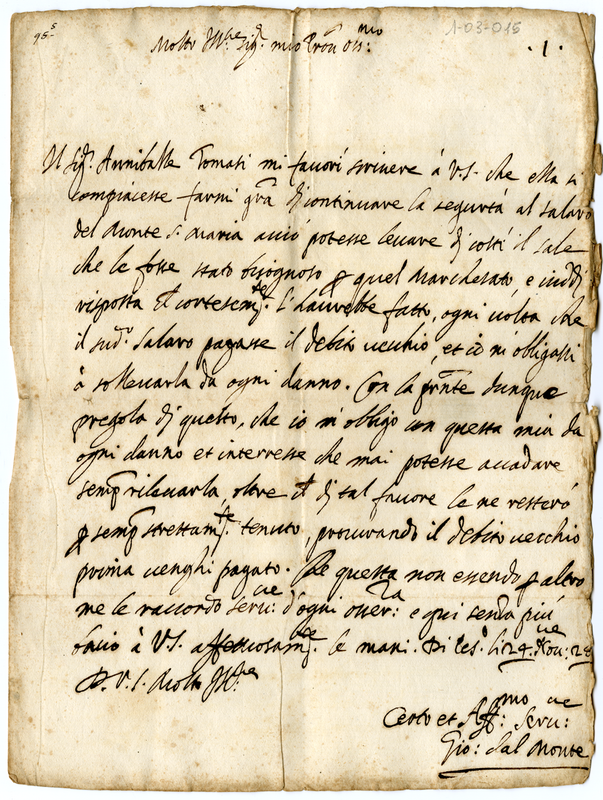 95.5
1-03-015
Molto Ill.re Sig.r mio Pron oss.mo
.1.
Il Sig.r Anniballe Tomati mi favorí scrivere à V.S. che ella si
compiacesse farmi gra di continuare la segurtà al salaro
del Monte S. Maria acció potesse levare di costí il sale
che le fosse stato bisognoso p quel Marchesato, e
risposta cortesem.te l'haurebbe fatto, ogni volta che
il sud.o salaro pagasse il debito vecchio, et io mi obligassi
à sollevarla da ogni danno. Con la pnte dunque
pregola di questo, che io mi obligo con questa mia da
ogni danno et interesse che mai potesse accadare
semp rilevarla, oltre di tal favore le ne resteró
p semp strettam.te tenuto, procurando il debito vecchio
prima venghi pagato. Ne questa non essendo p altro
me le raccordo serv.re d'ogni osser.za e qui senza piú
bacio à V.S. affettuosam.te le mani. Di li 24 Nov.re
D. V.S. Molto Ill.re
Certo et Aff.mo Serv.re
Gio: dal Monte